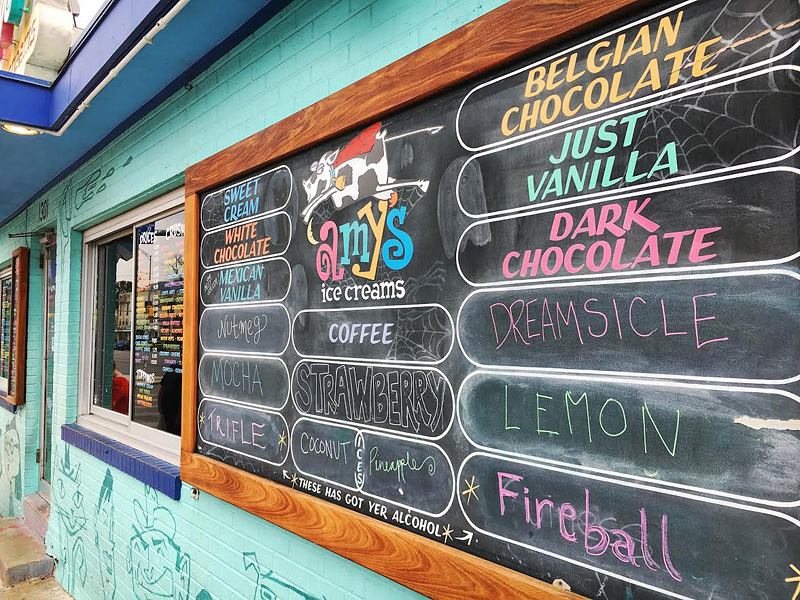 SWEET
CREAM
WHITE
CHOCOLATE
MEXICAN
VANILLA
Nutmeg
MOCHA
TRIFLE
amy's
ice creams
COFFEE
STRAWBERRY
COCONUT
ICES
Pineapple
THESE HAS GOT YER ALCOHOL
BELGIAN
CHOCOLATE
JUST
VANILLA
DARK
CHOCOLATE
DREAMSICLE
LEMON
Fireball